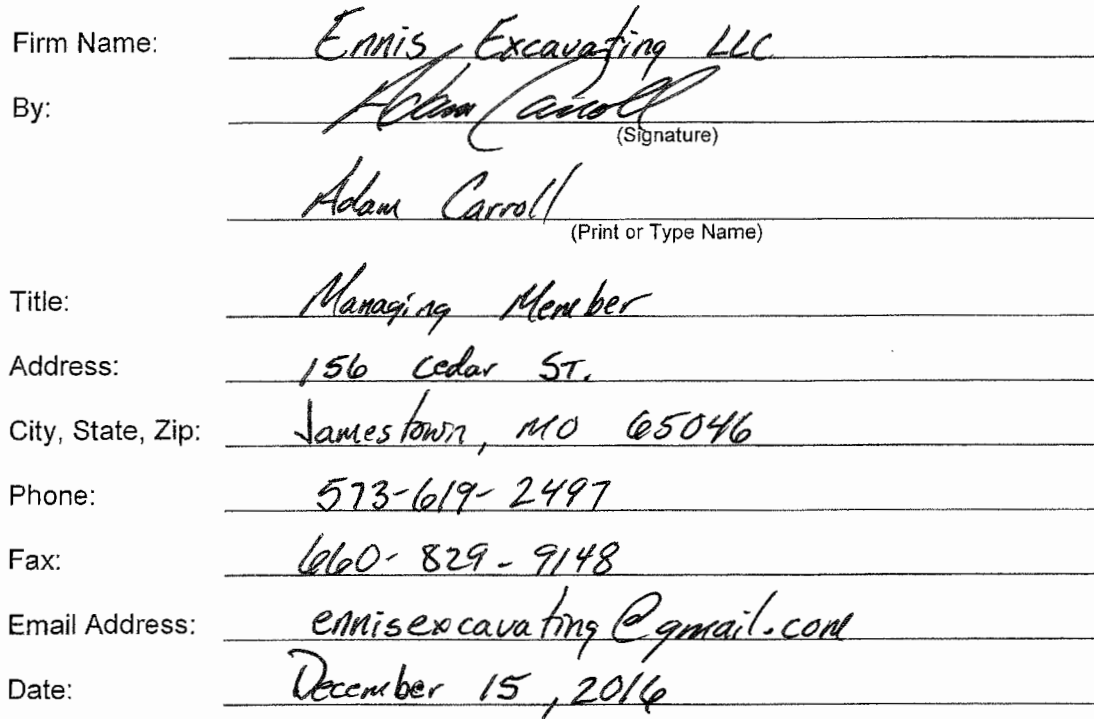 Firm Name: Ennis Excavating LLC
By: Adam Carroll
(Signature)
Adam Carroll
(Print or Type Name)
Title: Managing Member
Address: 156 Cedar ST.
City, State, Zip: Jamestown, MO 65046
Phone: 573-619-2497
Fax: 660-829-9148
Email Address: ennisexcavating@gmail.com
Date: December 15, 2016